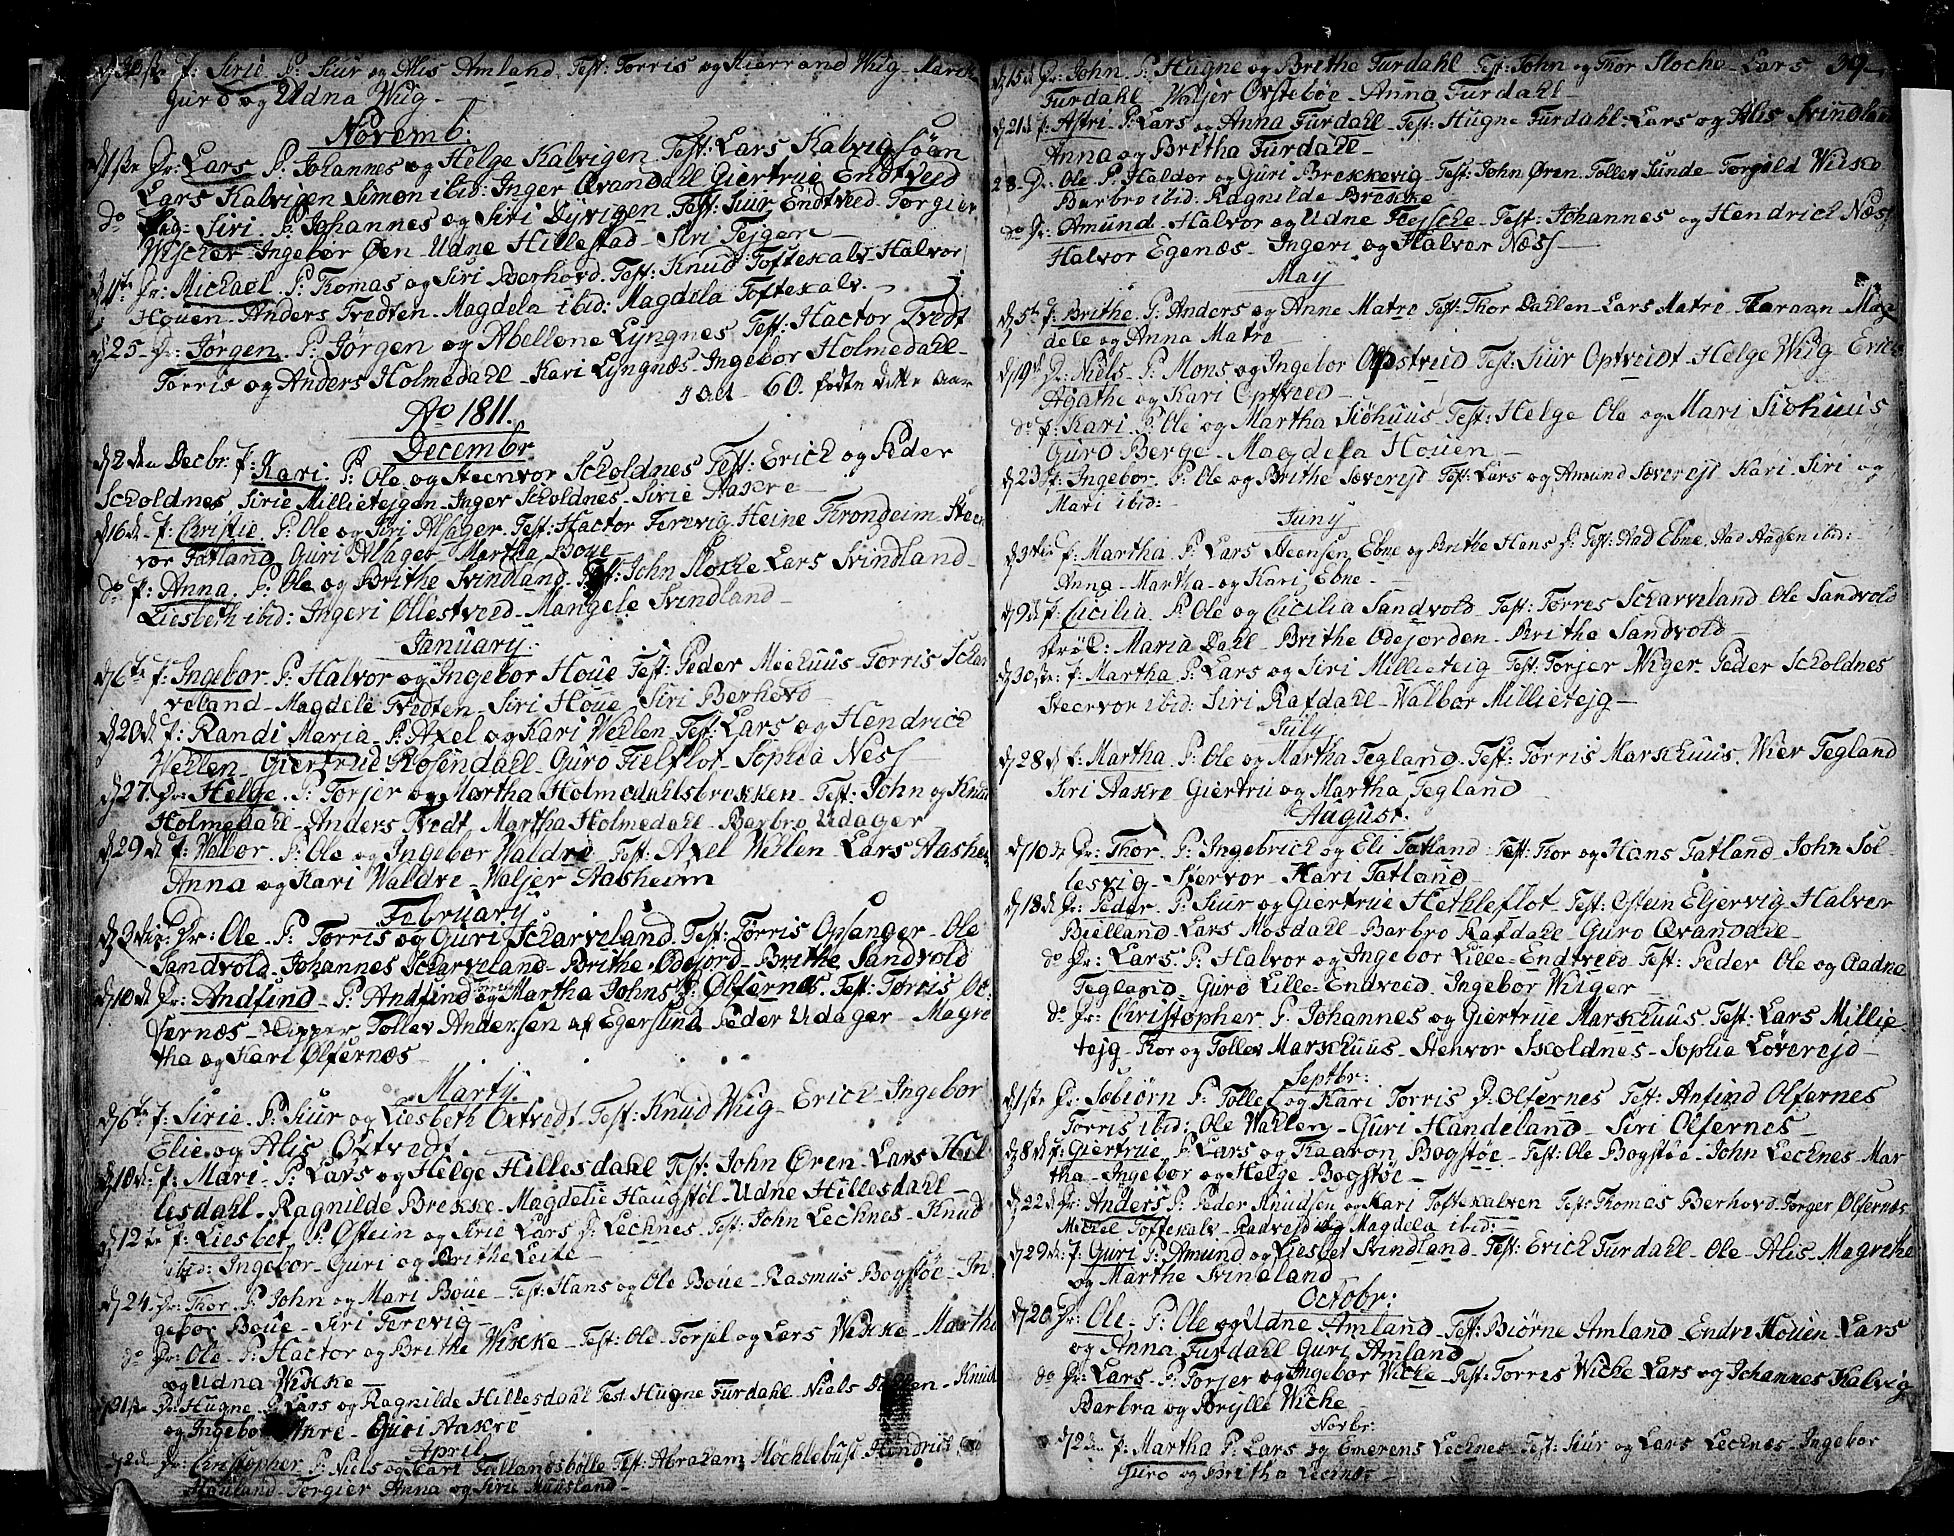 d 30te f: Sirie. P: Siur og Alis Amland. Test: Torris og Kierrand Wiig - Marite
Guro og Udna Wiig -
Novemb:
d 1ste Dr: Lars P: Johannes og Helge Kalvigen. Test: Lars Kalvig søen
Lars Kalvigen Simon ibid: Inger Qvandahl Giertrue Endtveid
do Siri. P: Johannes og Siri Dyrvigen. Test: Siur Endtveed Torgier
Wischer - Ingebor Øen - Udne Hillestad - Siri Tejgem -
Dr: Michael. P: Thomas og Siri Berhovd. Test: Knud Toftekalv - Halvor
Houen - Anders Tvedten. Magdela ibid: Magdela Toftekalv -
d 25 - Dr: Jørgen. P: Jørgen og Abellone Lyngnes Test: Hactor Tvedt
Torris og Anders Holmedahl - Kari Lyngnæs - Ingebor Holmedahl -
60. fødte dette aar
Ao 1811.
Decembr
d 2den Decbr. f: Kari. P: Ole og Steenvor Scholdnes Test: Erich og Peder
Scholdnes Sirie Millietejgen - Inger Scholdnes - Sirie Aakre -
d 16de f: Christie. P: Ole og Siri Alsager. Test: Hactor Ferevig - Heine Trondheim - Steen
vor Tatland Guri Alsager Martha Boue
do f: Anna. P: Ole og Brithe Svindland - Test: John Stocke Lars Svindland -
Liesbeth ibid: Ingeri Øllestveed - Mangele Svindland -
January.
d 6te f: Ingebor P: Halvor og Ingebor Houe Test: Peder Miehuus - Torris Schar
veland - Magdele Tvedten - Siri Houe, Siri Berhovd -
d 20de f: Randi Maria - P: Axel og Kari Wehlen Test: Lars og Hendrich
Wehlen - Giertrud Rosendahl - Guro Fielflot - Sophia Ness -
d 27. Dr: Helge. P: Torjer og Martha Holmedahlsbrekken - Test: John og Knud
Holmedahl - Anders Tvedt Martha Holmedahl - Barbro Udager
d 29de f: Walbor. P: Ole og Ingebor Waldre Test: Axel Wehlen - Lars Aashei
Anna og Kari Waldre - Waljer Aasheim
February
d 3die: Dr: Ole - P: Torris og Guri Scharveland. Test: Torris Opsanger - Ole
Sandvold. Johannes Scharveland - Brithe Odejord - Brithe Sandvold
d 10de Dr: Andfind - P: Andfind og Martha Johns D: Ølfernæs. Test: Torris Øl:
fernæs - Skipper Tollev Andersen af Egersund Peder Udager - Magre
tha og Kari Ølfernæs -
Martij.
d 6te f: Sirie. P: Siur og Liesbeth Øxtvedt - Test: Knud Wiig - Erich - Ingebor
Elie og Alis Øxtvedt.
d 10de: f: Mari. P: Lars og Helge Hillesdahl Test: John Øren - Lars Hil
lesdahl - Ragnilde Brekke - Magdelie Haugstøl - Udne Hillesdahl -
d 12te f: Liesbet. P: Østein og Sirie Lars D: Lecknes - Test: John Lecknes - Knud
ibid: Ingebor - Guri og Brithe Leite -
d 24. Dr: Thor. P: John og Mari Boue - Test: Hans og Ole Boue - Rasmus Bogstøe - In
gebor Boue - Siri Ferevig -
do Dr: Ole - P: Hactor og Brithe Wikke - Test: Ole - Torjel og Lars Wikke - Martha
og Udna Wikke -
d 31te Dr: Hugne - P: Lars og Ragnilde Hillesdahl Test Hugne Furdahl - Niels - Knud
og Ingebor Aakre - Guri Aakre
April
d 2de Dr: Christopher P: Niels og Kari Tatlandsbølle Test: Abraham Møchlebust Hendrich
Hauland - Torgier Anna og Sirie Muusland -

d 15de Dr: John. P: Hugne og Brithe Furdahl Test: John og Thor Stocke - Lars 39
Furdahl Waljer Ørstebøe - Anna Furdahl
d 21de f: Astri - P: Lars og Anna Furdahl - Test: Hugne Furdahl. Lars og Alis Svindland
Anna og Britha Furdahl -
28 - Dr: Ole P: Haldor og Guri Brekkevig - Test: John Øren - Tollev Sunde - Torgild Wiske
Barbro ibid: Ragnilde Brekke
do Dr: Amund - Halvor og Udne Flejsche - Test: Johannes og Hendrich Næss
Halvor Egenæs - Ingeri og Halvor Næss -
May
d 5te f: Brithe. P: Anders og Anne Matre Test: Thor Dahlen - Lars Matre - Karaan - Mag
dele og Anna Matre -
d 19de Dr: Niels - P: Mons og Ingebor Optveid Test: Siur Optveidt - Helge Wiig - Erich
Agathe og Kari Optveed -
do f: Kari. P: Ole og Martha Siøhuus - Test: Helge Ole og Mari Siøhuus
Guro Berge - Magdela Houen -
d 23 f: Ingebor - P: Ole og Brithe Sævereid Test: Lars og Amund Sævereid Kari Siri og
Mari ibid:
Juny
d 3die f: Martha. P: Lars Steensen Ebne og Brithe Hans D: Test: Aad Ebne. Aad Aadsen ibid:
Anna - Martha - og Kari Ebne -
d 9de f: Cicilia. P: Ole og Cicilia Sandvold - Test: Torres Scharveland Ole Sandvold
Maria Dahl - Brithe Odejorden - Brithe Sandvold -
d 30te f: Martha. P: Lars og Siri Millieteig Test: Torjer Wiger - Peder Scholdnes
Steervor ibid: Siri Rafdahl - Walbor Millietejg -
July
d 28de f: Martha. P: Ole og Martha Tegland. Test: Torris Markhuus, Wier Tegland
Siri Aakre Giertru og Martha Tegland -
August.
d 10de Dr: Thor. P: Ingebrich og Eli Tatland - Test: Thor og Hans Tatland - John Sol
lesvig - Stervor - Kari Tatland -
d 18de Dr: Peder. P: Siur og Giertrue Hethleflot. Test: Østein Eljervig Halver
Bielland. Lars Mosdahl - Barbro Rafdahl Guro Qvandahl -
do Dr: Lars P: Halvor og Ingebor Lille - Endtveed Test: Peder Ole og Aadne
Tegland - Guro Lille - Endveed. Ingebor Wiiger -
do Dr: Christopher P: Johannes og Giertrue Markhuus. Test: Lars Millie
tejg - Thor og Tollev Markhuus - Stenvor Skoldnes - Sophia Løvereid -
Septbr:
d 1ste Dr: Sebiørn P: Tollef og Kari Torris D: Olfernes Test: Anfind Olfernes
Torris ibid: Ole Wahlen - Guri Handeland - Siri Olfernes -
d 8de f: Giertrue P: Lars og Kaaron Bogstøe - Test: Ole Bogstøe - John Lecknes - Mar
tha - Ingebor og Helge Bogstøe -
d 22de Dr: Anders P: Peder Knudsen og Kari Toftekalven Test: Thomas Berhovd. Torger Ølfernæs
Michel Toftekalv - Radveid og Magdela ibid:
d 29de: f: Guri P: Amund og Liesbet Svindland - Test: Erich Furdahl - Ole - Alis - Magrethe
og Marthe Svindland
Octobr:
d 20. Dr: Ole. P: Ole og Udne Amland - Test: Biørne Amland - Endre Houen - Lars
og Anna Furdahl Guri Amland
do Dr: Lars P: Torjer og Ingebor Wicke - Test: Torris Wiche - Lars og Johannes Kalvig
Barbra og Brylle Wiche
Novbr:
d 2den f: Martha P: Lars og Emerens Lecknes - Test: Siur og Lars Lecknes - Ingebor
Guro og Britha Lecknes -